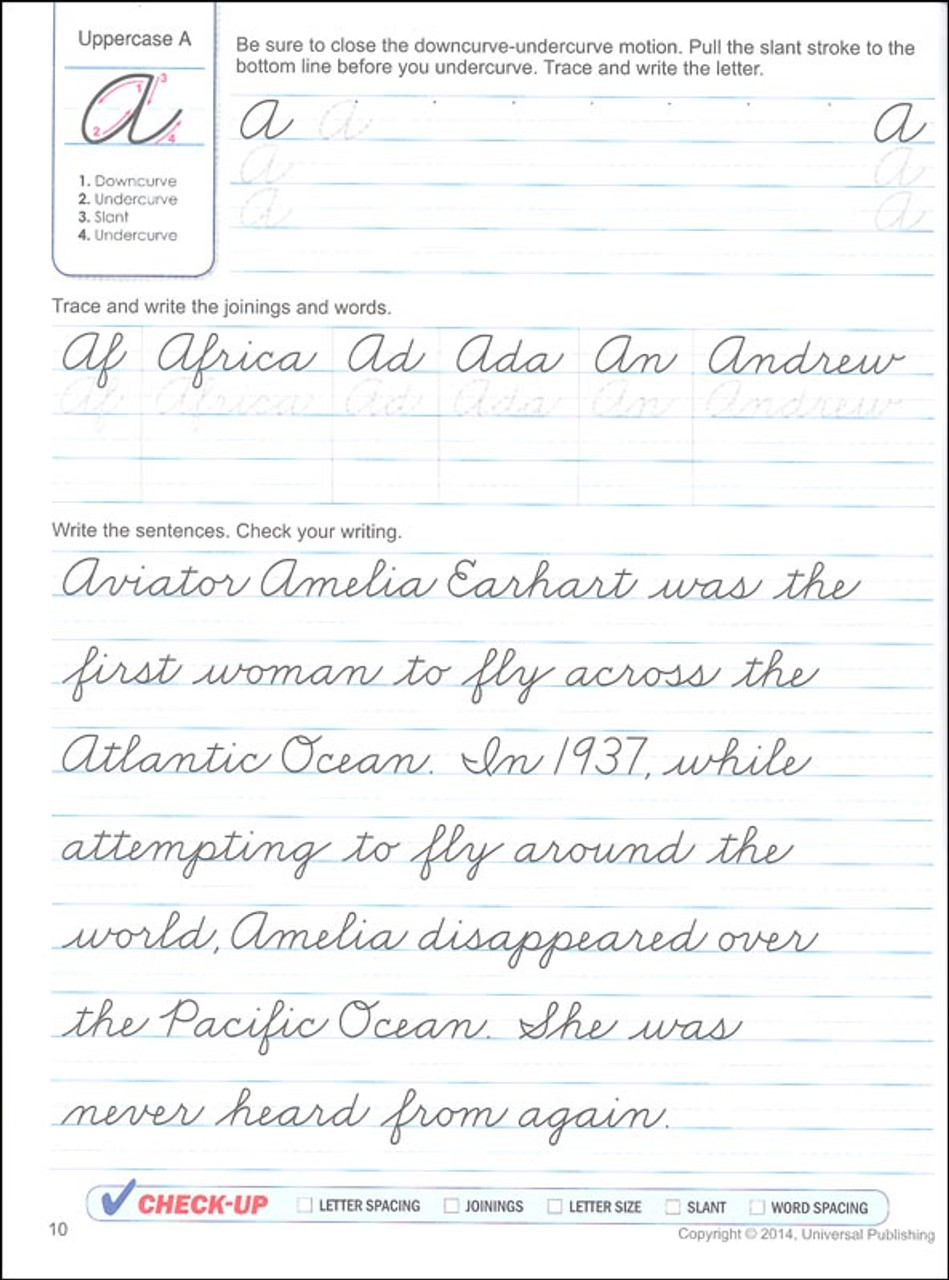 Uppercase A
Be sure to close the downcurve-undercurve motion. Pull the slant stroke to the
bottom line before you undercurve. Trace and write the letter.
A 1 2 3 4
A A A
A A
A A
1. Downcurve
2. Undercurve
3. Slant
4. Undercurve
Trace and write the joinings and words.
Af Africa Ad Ada An Andrew
Af Africa Ad Ada An Andrew
Write the sentences. Check your writing.
Aviator Amelia Earhart was the
first woman to fly across the
Atlantic Ocean. In 1937, while
attempting to fly around the
world, Amelia disappeared over
the Pacific Ocean. She was
never heard from again.
CHECK-UP LETTER SPACING JOININGS LETTER SIZE SLANT WORD SPACING
10
Copyright © 2014, Universal Publishing